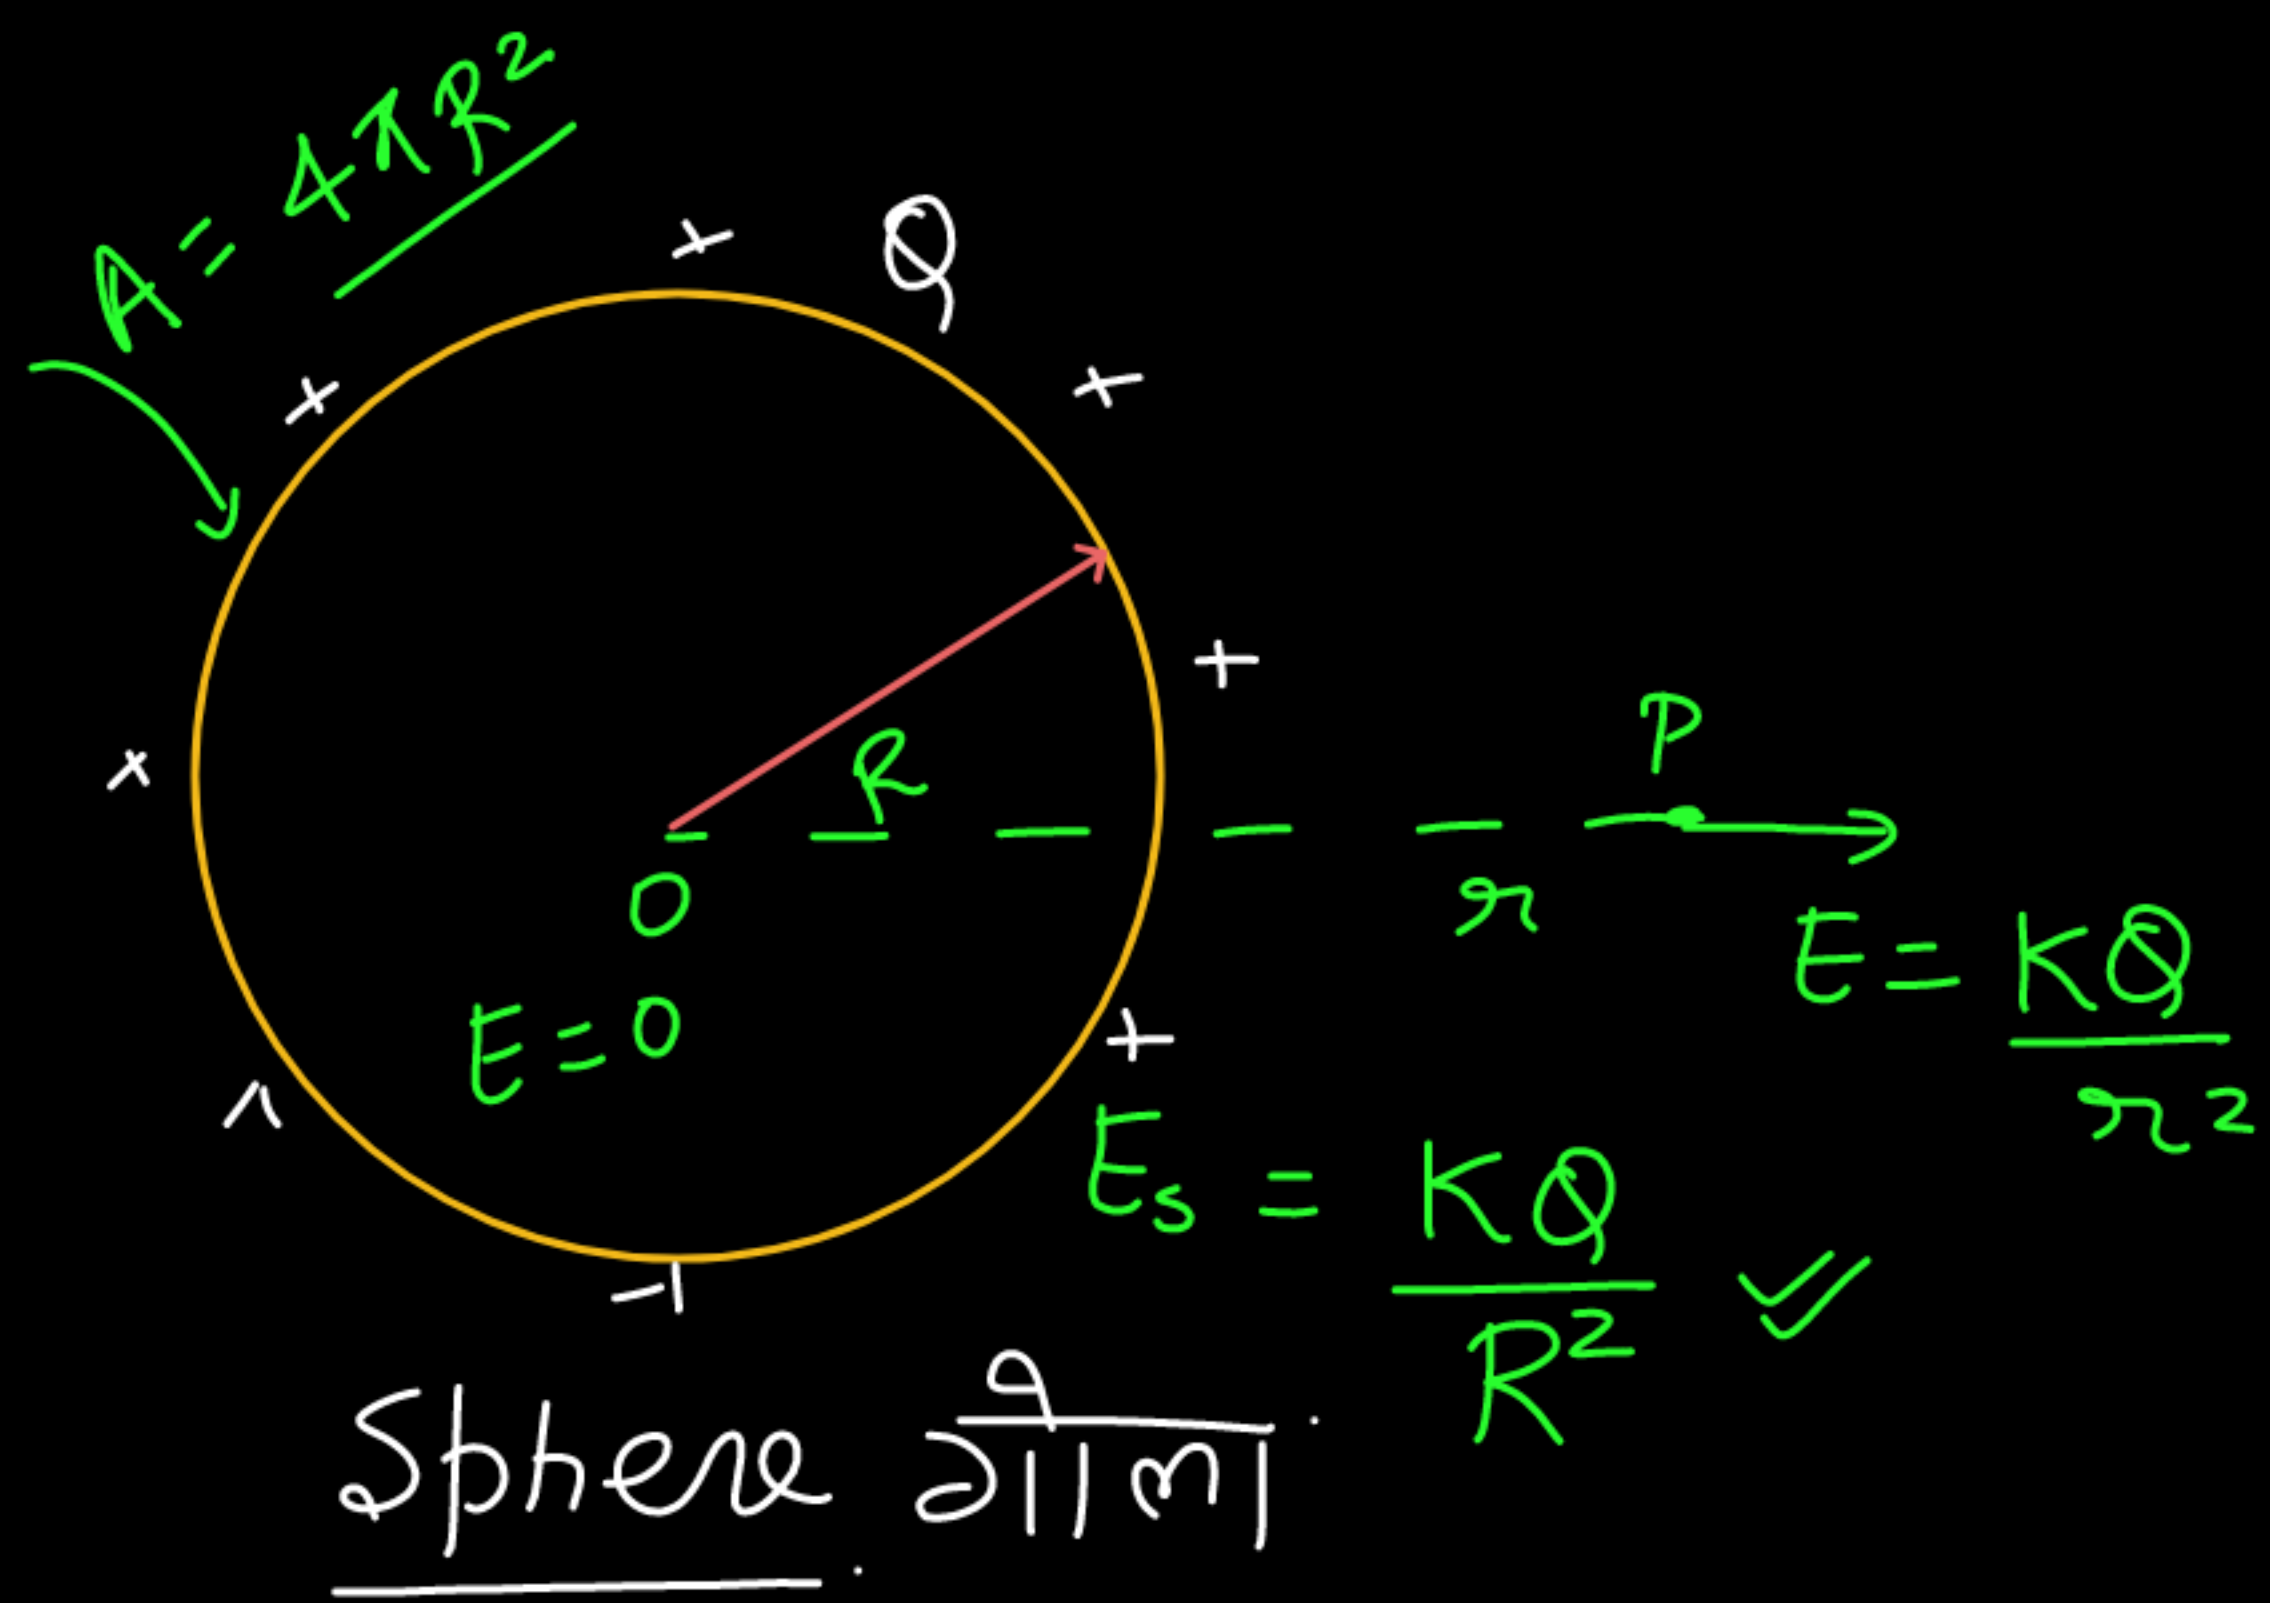 A = 4πR²
Q
R
P
O
r
E = 0
E = KQ/r²
E_s = KQ/R²
Sphere गोला